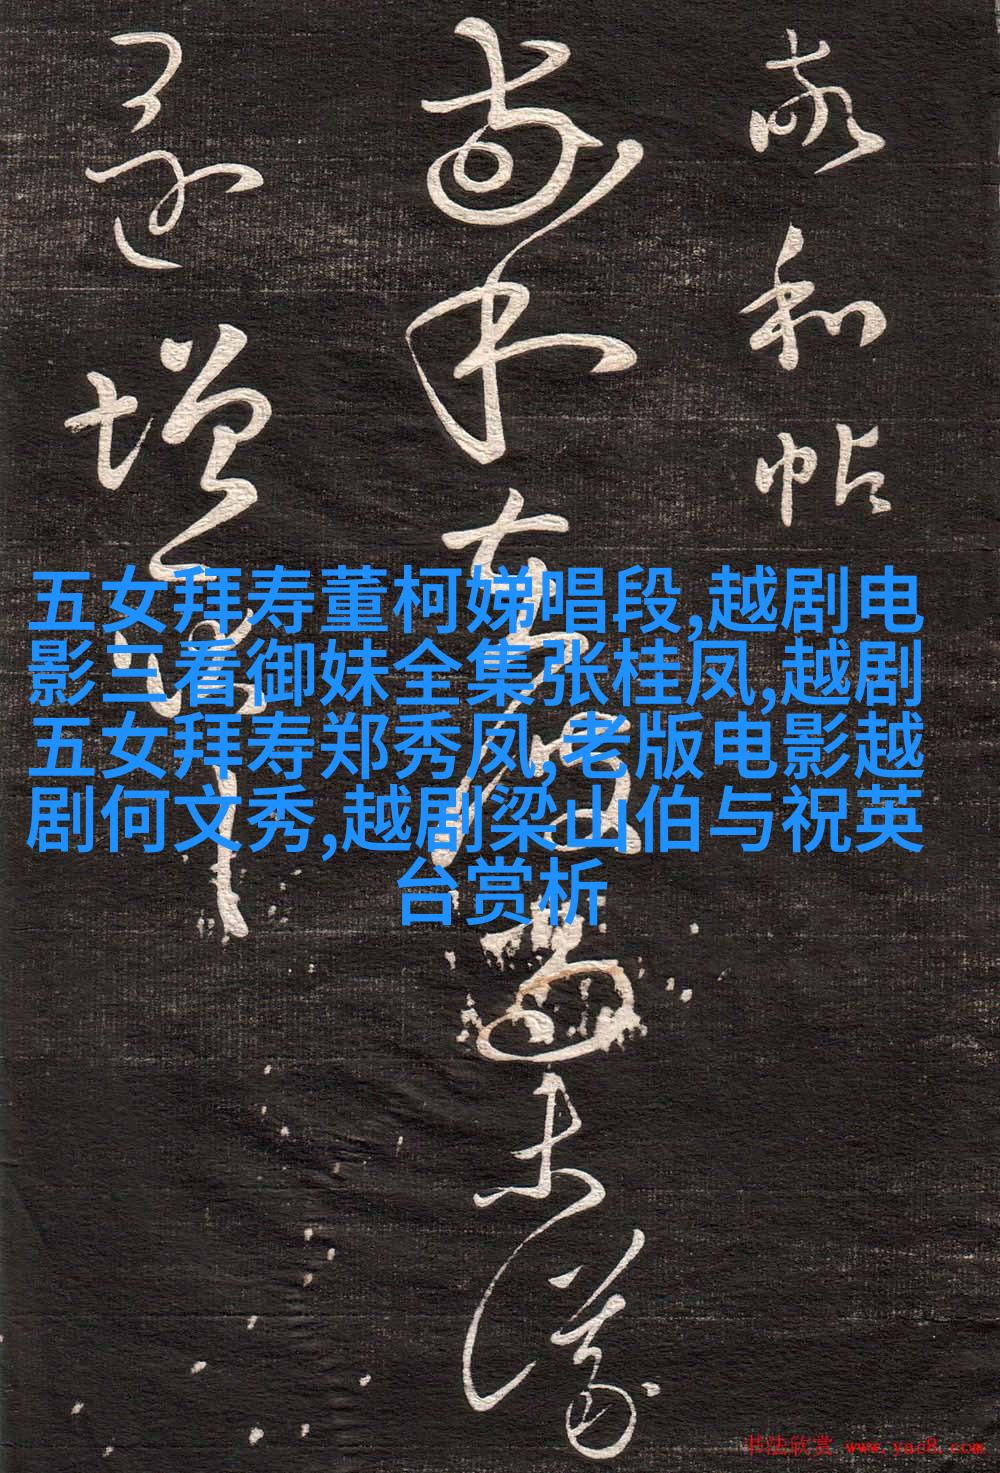 敬和帖
敬和在彼尚未議
還增耿
五女拜寿董柯娣唱段,越剧电
影三看御妹全集张桂凤,越剧
五女拜寿郑秀凤,老版电影越
剧何文秀,越剧梁山伯与祝英
台赏析
书法欣赏 www.yac8.com